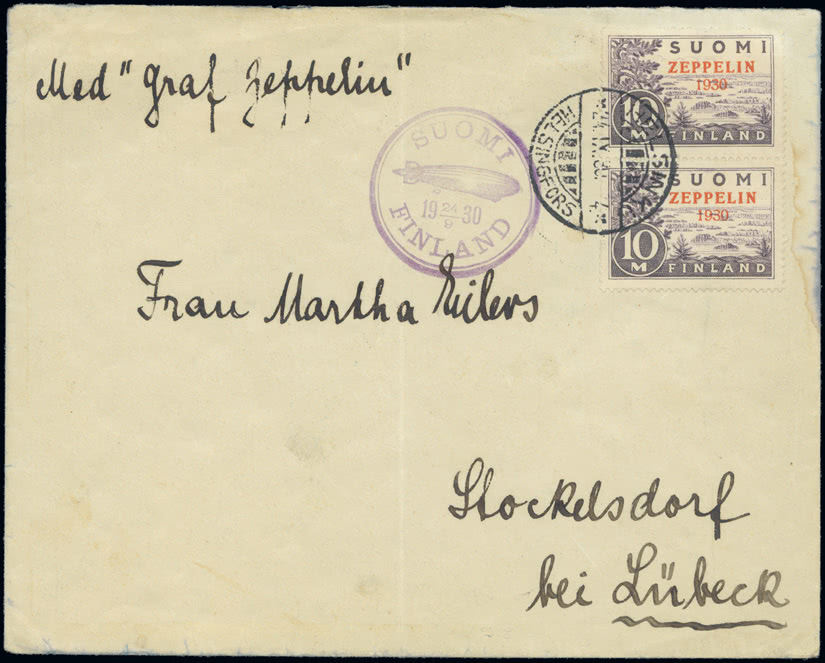 Med "Graf Zeppelin"
SUOMI
19 24/9 30
FINLAND
HELSINKI
HELSINGFORS
SUOMI
ZEPPELIN
1930
10 M
FINLAND
SUOMI
ZEPPELIN
1930
10 M
FINLAND
Frau Martha Eilers
Stockelsdorf
bei Lübeck